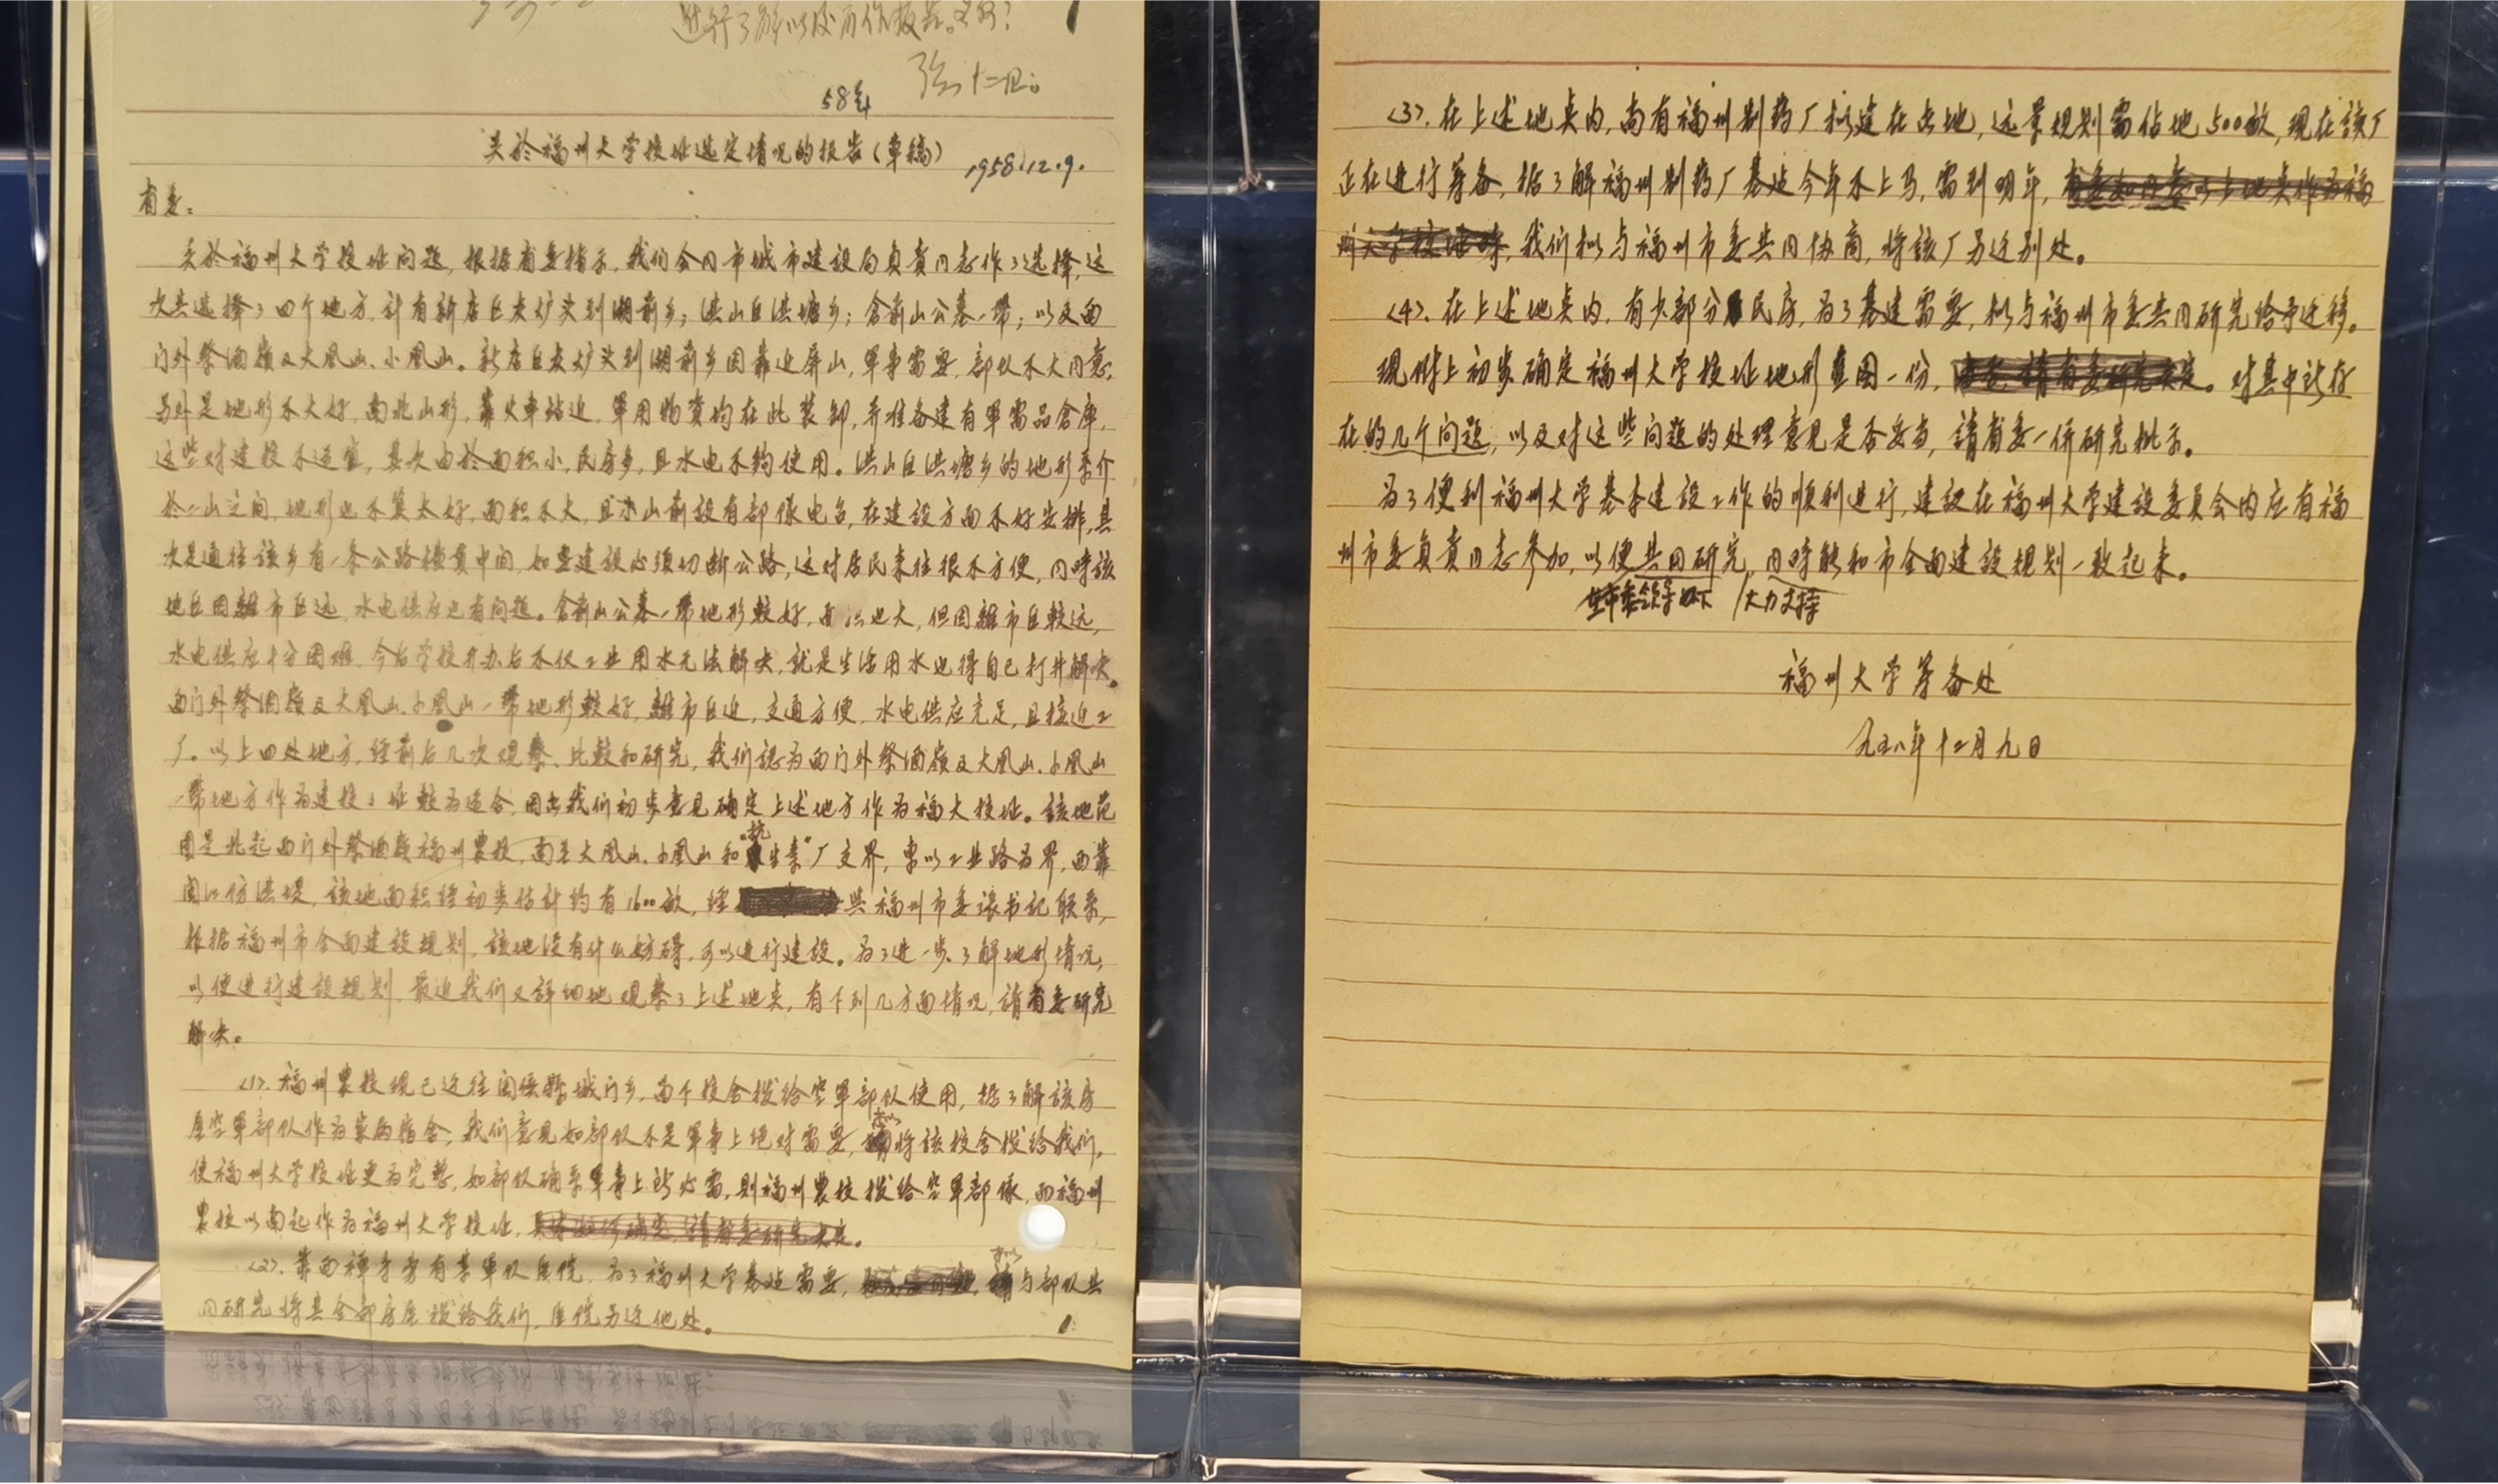 进行了解以后再作报告。是否?
张 十二.
58年
关於福州大学校址选定情况的报告(草稿)
1958.12.9.
省委:
关於福州大学校址问题,根据省委指示,我们会同市城市建设局负责同志作了选择,这
次共选择了四个地方,计有新店区炭炉头到湖前乡;洪山区洪塘乡;仓前山公墓一带;以及西
门外祭酒嶺及大凤山、小凤山。新店区炭炉头到湖前乡因靠近屏山,軍事需要,部队不大同意,
另外是地形不大好,南北山形,靠火車站近,軍用物資均在此装卸,并准备建有軍需品倉庫,
这些对建校不适宜,其次由於面积小,民房多,且水电不夠使用。洪山区洪塘乡的地形系介
於二山之间,地形也不算太好,面积不大,且 山前設有部隊电台,在建設方面不好安排,其
次是通往該乡有一条公路横貫中间,如要建設必須切断公路,这对居民来往很不方便,同時該
地区因離市区远,水电供应也有问题。倉前山公墓一带地形較好,面积也大,但因離市区較远,
水电供应十分困难,今后学校开办后不仅工业用水无法解决,就是生活用水也得自己打井解决。
西门外祭酒嶺及大凤山、小凤山一带地形較好,離市区近,交通方便,水电供应充足,且接近工
厂。以上四处地方,经前后几次观察、比較和研究,我们認为西门外祭酒嶺及大凤山、小凤山
一带地方作为建校工址較为适合,因此我们初步意見确定上述地方作为福大校址。該地范
围是北起西门外祭酒嶺福州農校,南至大凤山、小凤山和"抗生素"厂交界,東以工业路为界,西靠
闽江防洪堤,該地面积经初步估計約有1600畝,经 与福州市委 书記联系,
根据福州市全面建設規划,該地没有什么妨碍,可以进行建設。为了进一步了解地形情况,
以便进行建設規划,最近我们又詳细地观察了上述地点,有下列几方面情况,請省委研究
解决。
(1).福州農校現已迁往闽侯縣城门乡,留下校舍拨给空軍部队使用,据了解該房
屋空軍部队作为家属宿舍,我们意見如部队不是軍事上绝对需要,拟将該校舍拨给我们,
使福州大学校址更为完整,如部队确系軍事上所必需,则福州農校拨给空軍部隊,而福州
農校以南起作为福州大学校址,具体如何确定,請省委研究决定。
(2).靠西禅寺旁有某軍队医院,为了福州大学基建需要, 拟与部队共
同研究将其全部房屋拨给我们,医院另迁他处。
1.
(3).在上述地点内,尚有福州制药厂拟建在此地,远景規划需佔地500畝,現在該厂
正在进行筹备,据了解福州制药厂基建今年不上马,需到明年,省委如同意以上地点作为福
州大学校址時,我们拟与福州市委共同协商,将該厂另迁别处。
(4).在上述地点内,有少部分民房,为了基建需要,拟与福州市委共同研究给予迁移。
現附上初步确定福州大学校址地形蓝图一份, 請省委研究决定。对其中所存
在的几个问题,以及对这些问题的处理意見是否妥当,請省委一併研究批示。
为了便利福州大学基本建設工作的順利进行,建議在福州大学建設委員会内应有福
州市委負責同志参加,以便共同研究,同時能和市全面建設規划一致起来。
在市委領导以下 大力支持
福州大学筹备处
一九五八年十二月九日